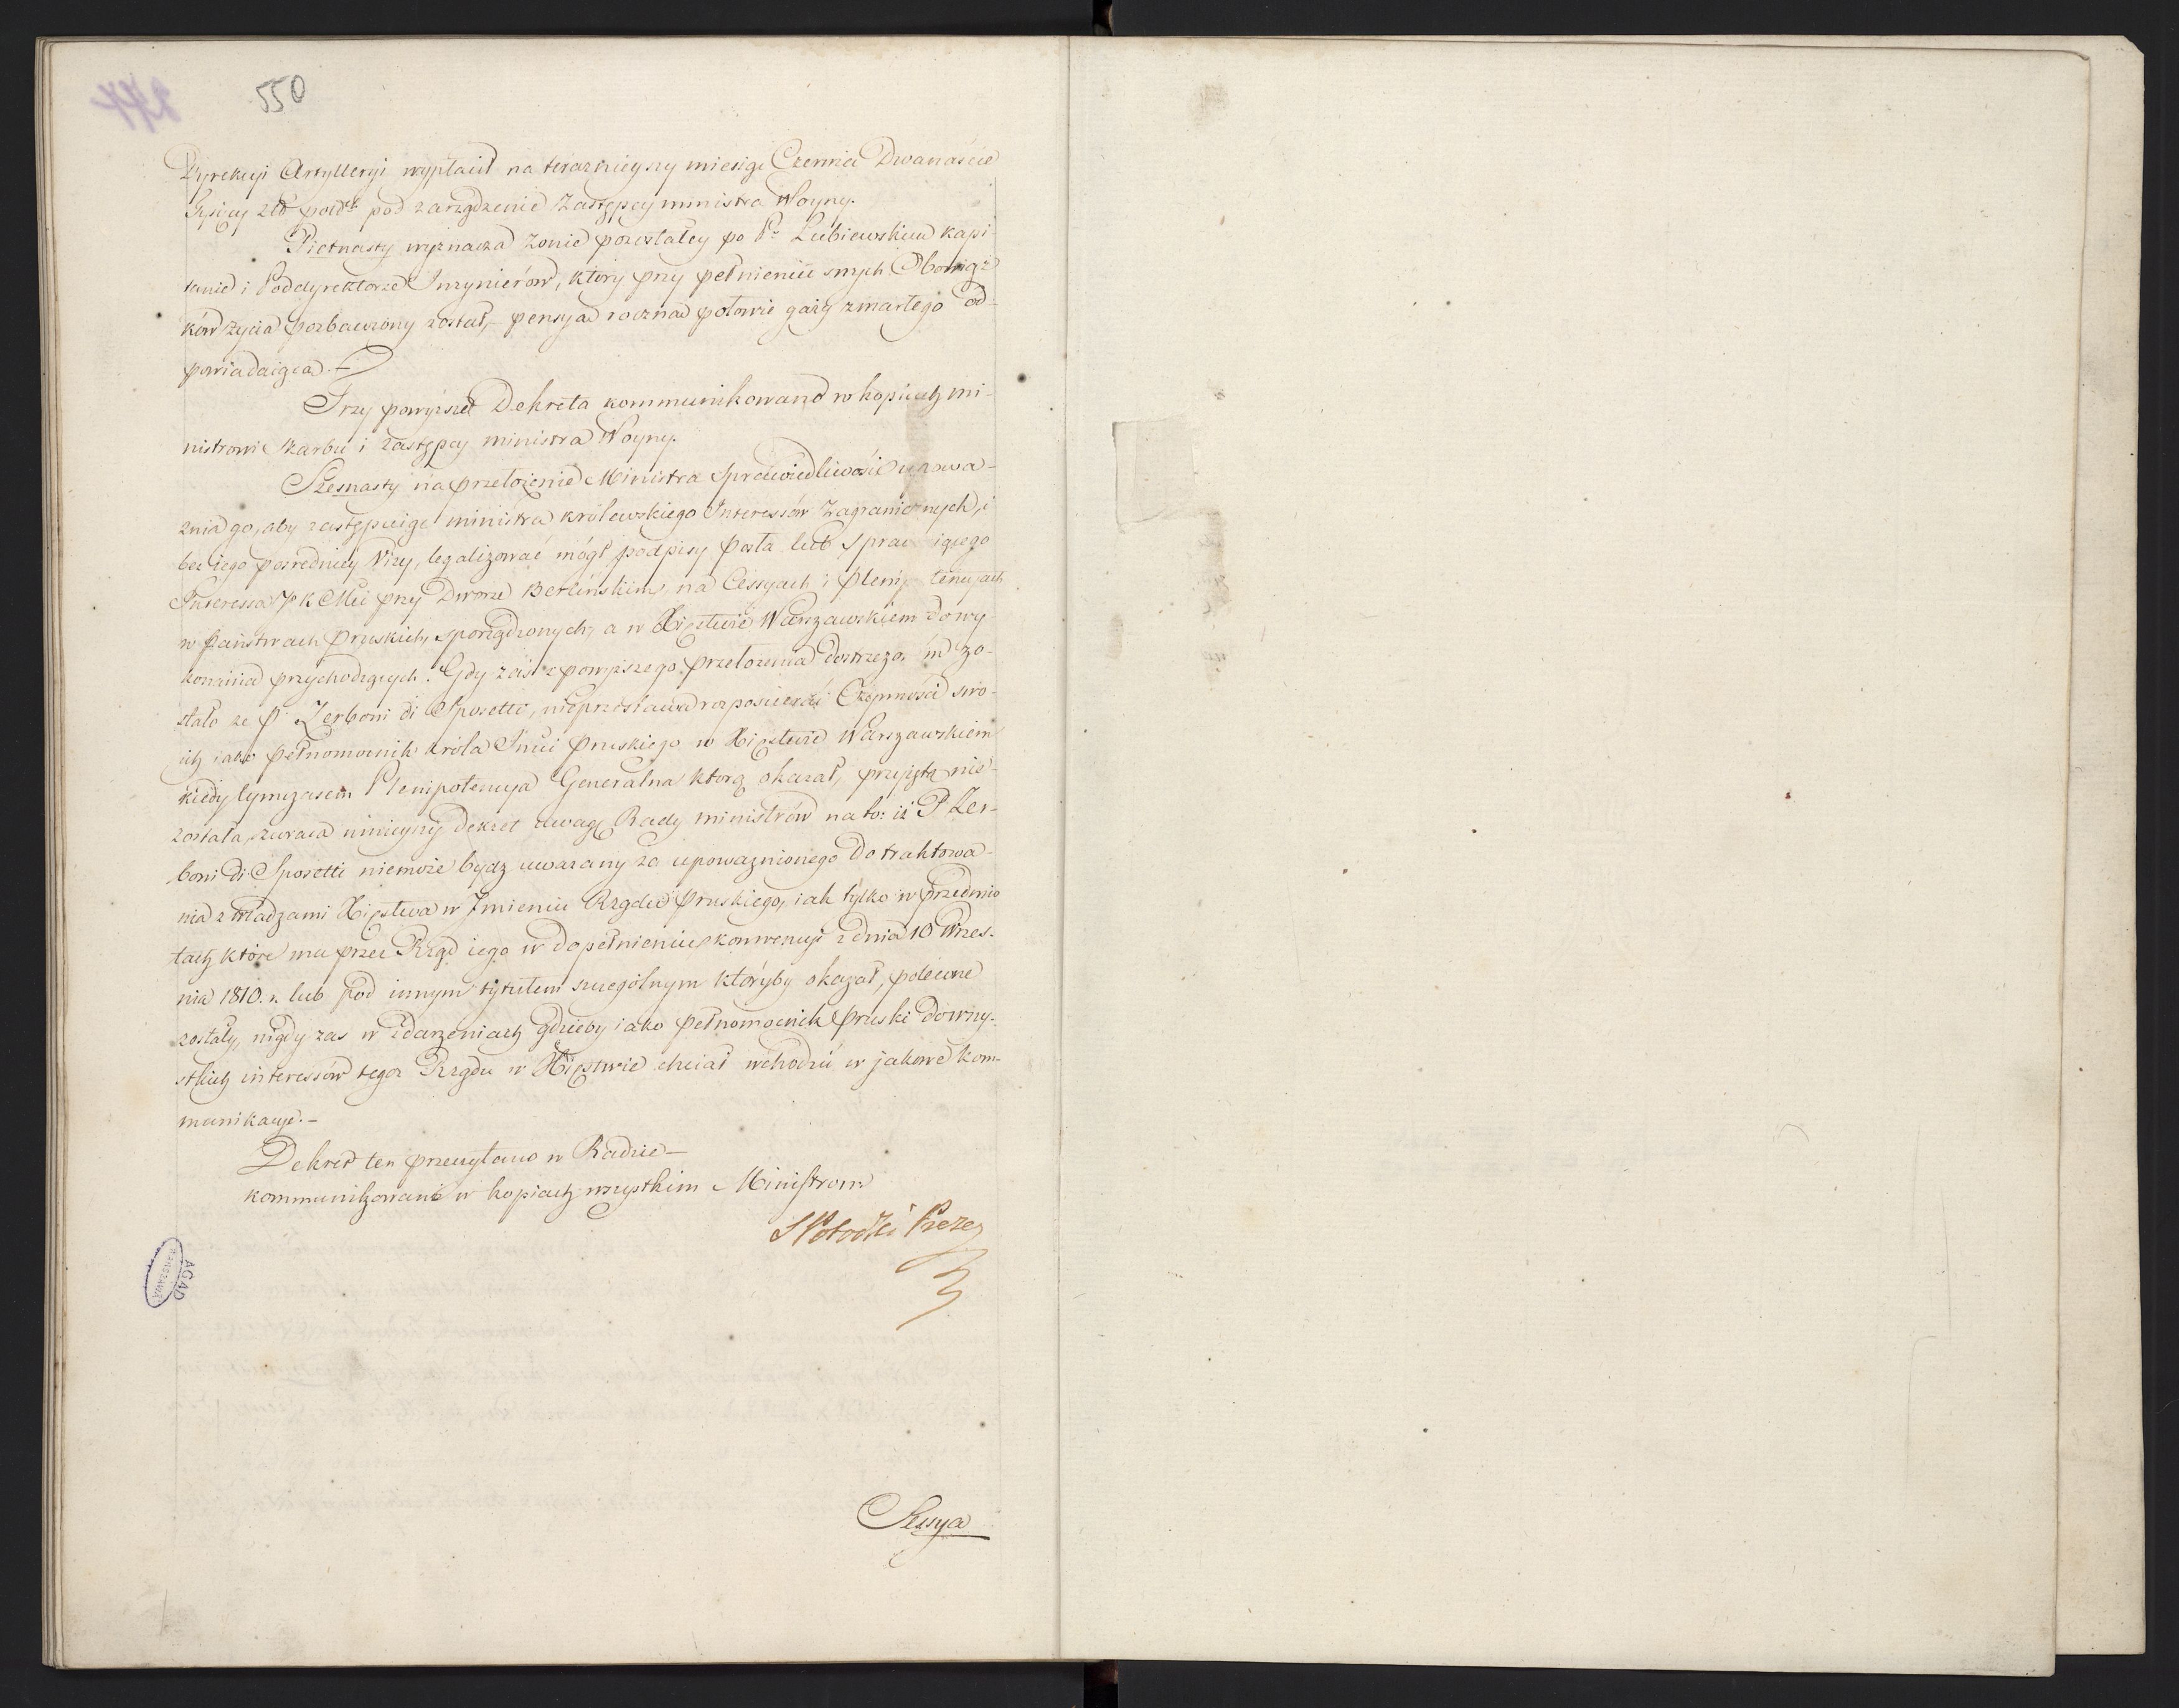 550
Dyrekcyi Artylleryi wypłacił na teraznieyszy miesiąc Czerwiec Dwanaście
Tysięcy złt pod zarządzenie Zastępcy ministra Woyny.
Pietnasty wyznacza żonie pozostałey po P. Lubiewskim kapi-
tanie i Poddyrektorze Inzynierów, ktory przy pełnieniu swych Obowiąz-
ków życia pozbawiony został, pensyą roczną połowie gaży zmarłego od-
powiadaiącą.—
Trzy powyższe Dekreta kommunikowano w kopiach mi-
nistrowi skarbu i zastępcy ministra Woyny.
Szesnasty na przełożenie Ministra Sprawiedliwości upowa-
żnia go, aby zastępuiąc ministra królewskiego Interessów Zagranicznych, i
bez iego posredniey Wizy, legalizować mógł podpisy Posła lub Spraw iącego
Interessa JK Mci przy Dworze Berlińskim, na Cessyach i Plenip tencyach
w Państwach Pruskich, sporządzonych, a w Xięstwie Warszawskiem do wy-
konania przychodzących. Gdy zaś z powyższego przełożenia dostrzeżo m zo-
stało ze P. Zerboni di Sposetti, nieprzestawa rozpościerać Czynności swo-
ich iako pełnomocnik króla Jmci Pruskiego w Xięstwie Warszawskiem
kiedy tymczasem Plenipotencya Generalna ktorą okazał, przyiętą nie-
została, zwraca ninieyszy Dekret uwagę Rady ministrów na to: iż P Zer-
boni di Sposetti niemoże bydz uwazany za upowaznionego do traktowa-
nia z władzami Xięstwa w Imieniu Rządu Pruskiego, iak tylko w przedmio
tach które mu przez Rząd iego w dopełnieniu konwencyi z dnia 10 Wrzes-
nia 1810. r. lub pod innym tytułem szczególnym któryby okazał, polecone
zostały, nigdy zas w zdarzeniach gdzieby iako pełnomocnik Pruski do wszy-
stkich interessów tegoz Rządu w Xięstwie chciał wchodzić w jakowe kom-
munikacye.—
Dekret ten przeczytano w Radzie—
kommunikowano w kopiach wszystkim Ministrom
S Potocki Prezes
AGAD
WARSZAWA
Sessya